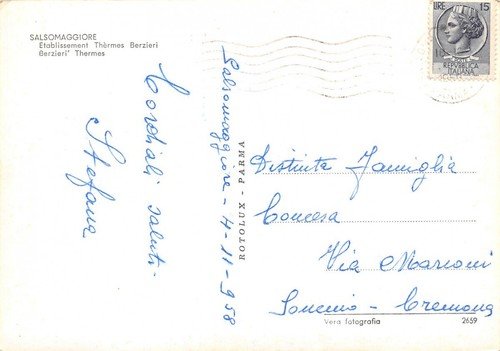 SALSOMAGGIORE
Etablissement Thèrmes Berzieri
Berzieri' Thermes
Cordiali saluti
Stefana
Salsomaggiore - 4-11-958
ROTOLUX - PARMA
LIRE 15
REPUBBLICA
ITALIANA
Distinta Famiglia
Concesa
Via Marconi
Soncino - Cremona
Vera fotografia 2659